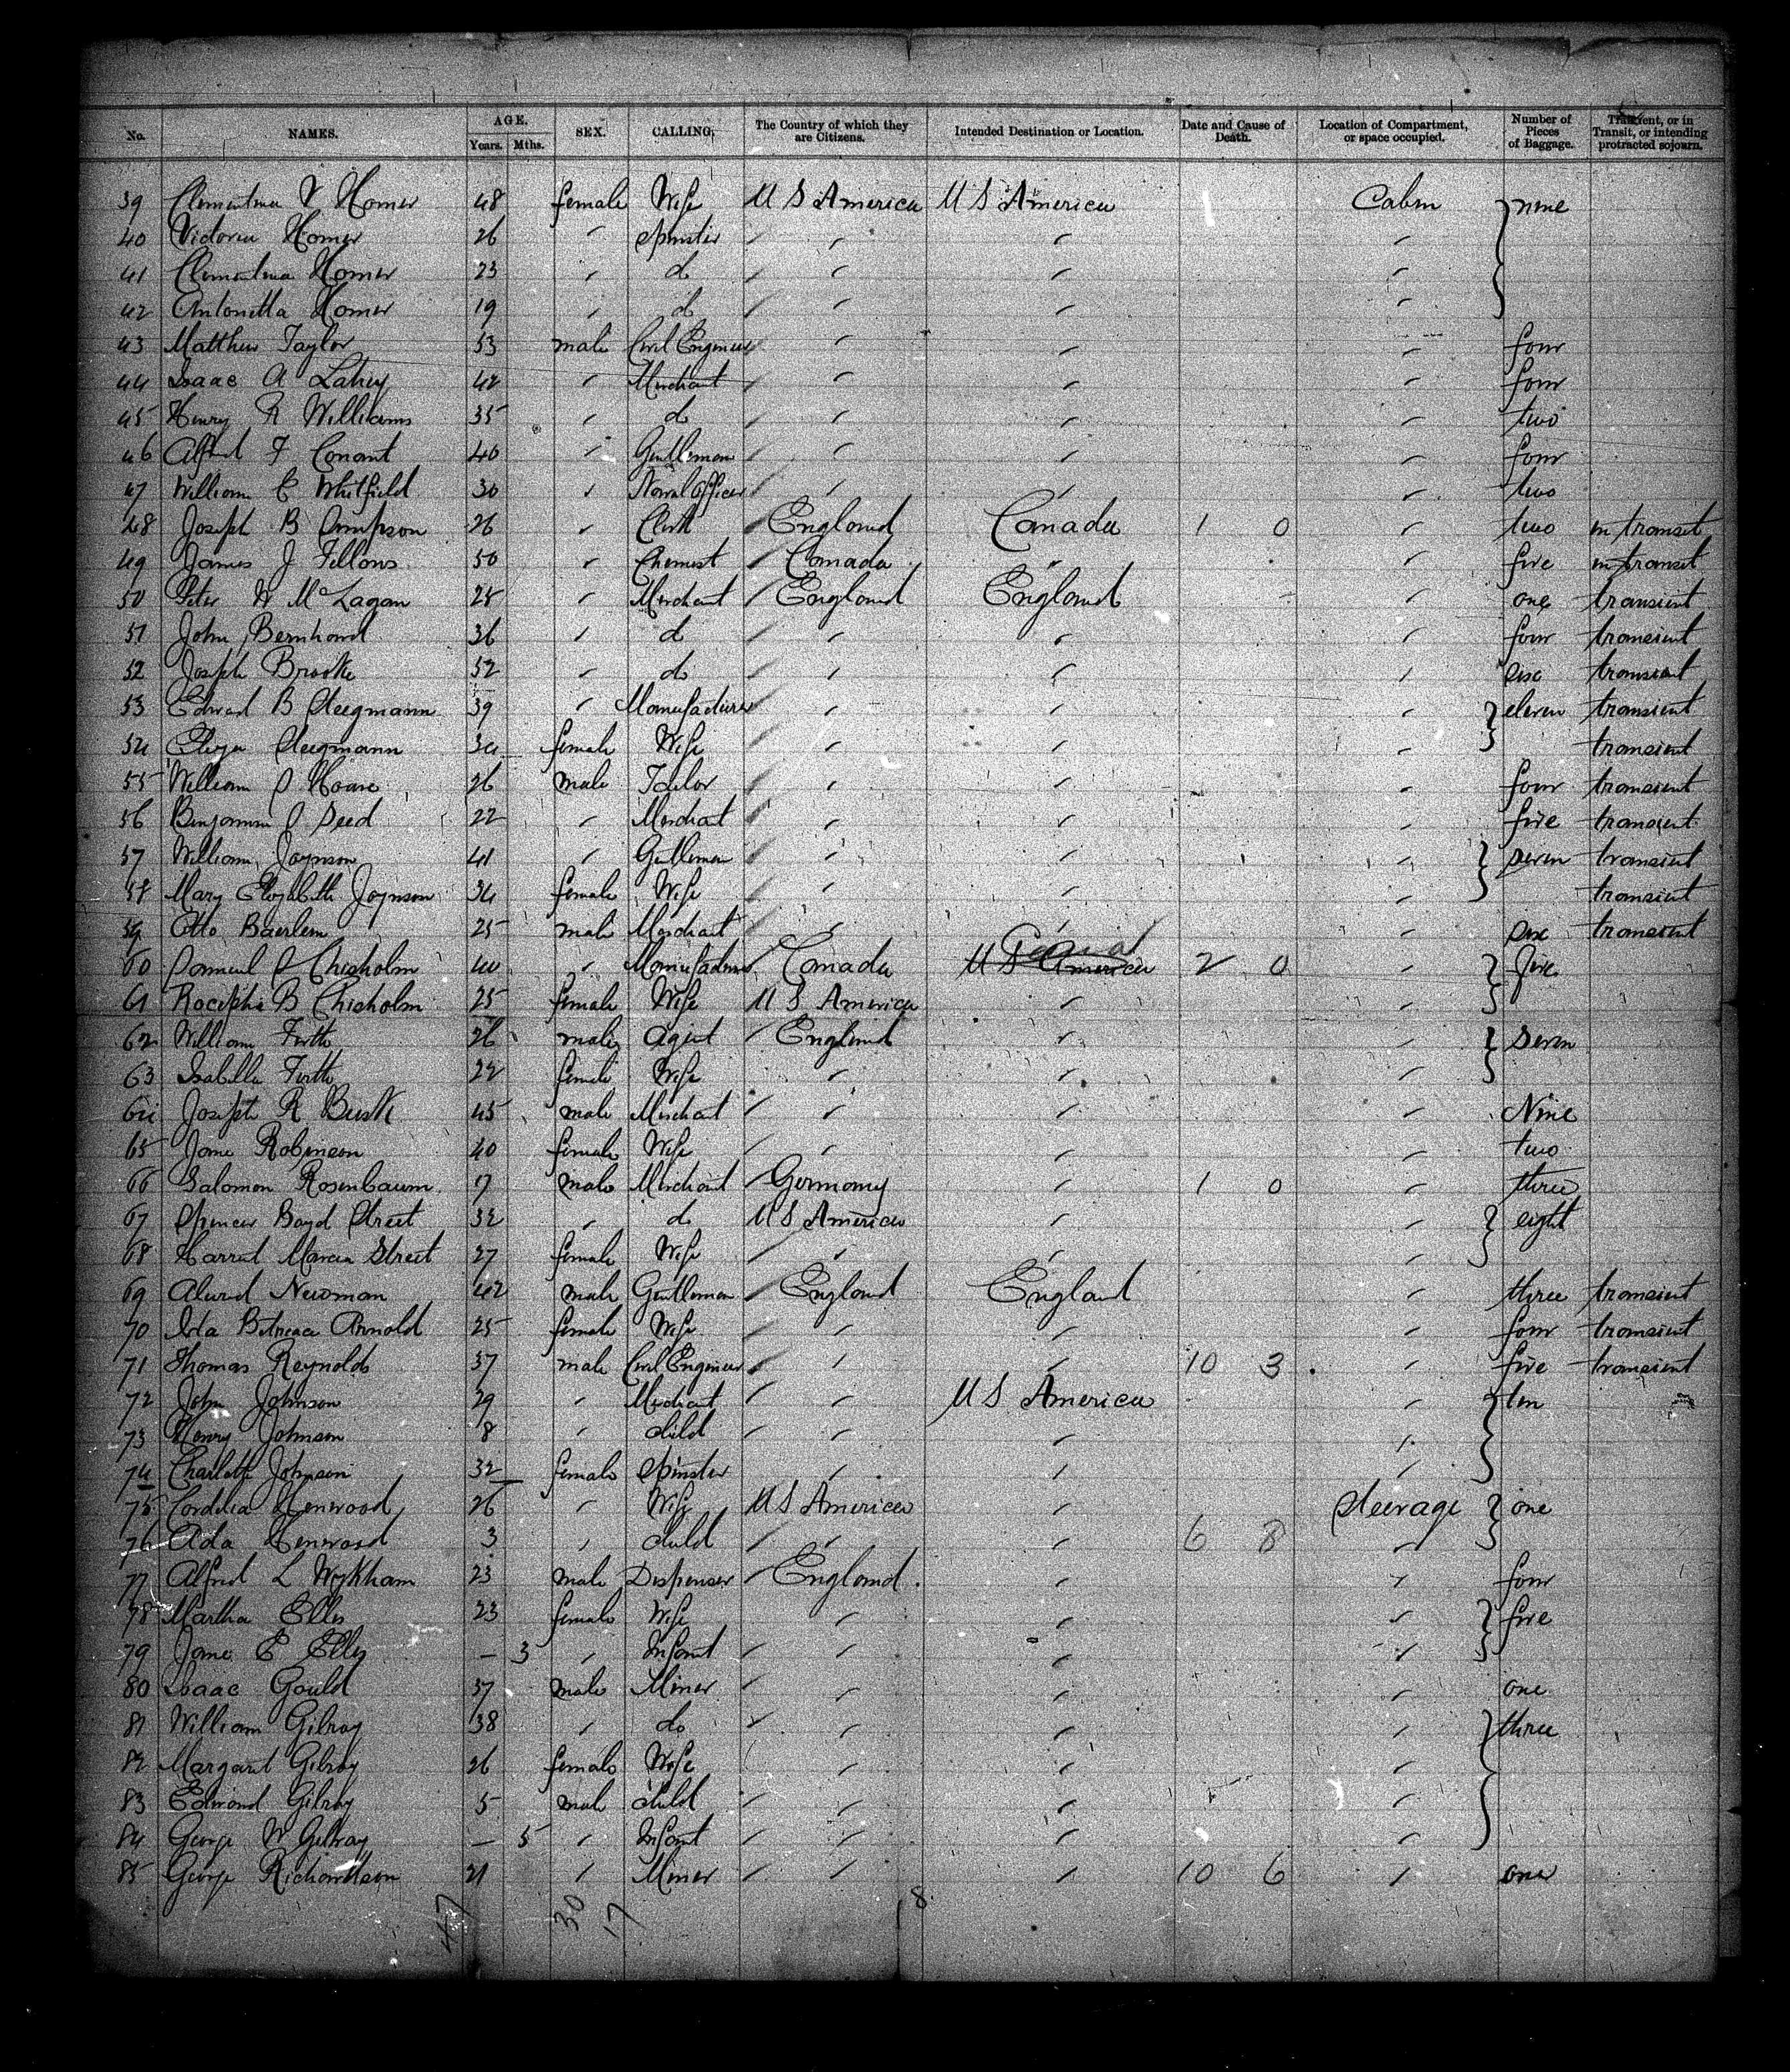 No. NAMES. AGE. Years. Mths. SEX. CALLING. The Country of which they are Citizens. Intended Destination or Location. Date and Cause of Death. Location of Compartment, or space occupied. Number of Pieces of Baggage. Transient, or in Transit, or intending protracted sojourn.
39 Clementina V Homer 48 female Wife U S America U S America Cabin nine
40 Victoria Homer 26 〃 Spinster 〃 〃 〃
41 Clementina Homer 23 〃 do 〃 〃 〃
42 Antonetta Homer 19 〃 do 〃 〃 〃
43 Matthew Taylor 53 male Civil Engineer 〃 〃 〃 four
44 Isaac A Lahey 42 〃 Merchant 〃 〃 〃 four
45 Henry R Williams 35 〃 do 〃 〃 〃 two
46 Alfred F Conant 40 〃 Gentleman 〃 〃 〃 four
47 William C Whitfield 30 〃 Naval Officer 〃 〃 〃 two
48 Joseph B 26 〃 Clerk England Canada 1 0 〃 two in transit
49 James J Fellows 50 〃 Chemist Canada 〃 〃 five in transit
50 Peter W McLagan 28 〃 Merchant England England 〃 one transient
51 John Bernhard 36 〃 do 〃 〃 〃 four transient
52 Joseph Brooke 52 〃 do 〃 〃 〃 six transient
53 Edward B Steegmann 39 〃 Manufacturer 〃 〃 〃 eleven transient
54 Eliza Steegmann 34 female Wife 〃 〃 〃 transient
55 William J Hoare 26 male Tailor 〃 〃 〃 four transient
56 Benjamin J Seed 22 〃 Merchant 〃 〃 〃 five transient
57 William Joynson 41 〃 Gentleman 〃 〃 〃 seven transient
58 Mary Elizabeth Joynson 34 female Wife 〃 〃 〃 transient
59 Otto Baerlein 25 male Merchant 〃 〃 〃 six transient
60 J Chisholm 40 〃 Manufacturer Canada U S America Canada 2 0 〃 five
61 B Chisholm 25 female Wife U S America 〃 〃
62 William Firth 26 male Agent England 〃 〃 seven
63 Isabella Firth 22 female Wife 〃 〃 〃
64 Joseph R Busk 45 male Merchant 〃 〃 〃 Nine
65 Jane Robinson 40 female Wife 〃 〃 〃 two
66 Salomon Rosenbaum 17 male Merchant Germany 〃 1 0 〃 three
67 Spencer Boyd Street 32 〃 do U S America 〃 〃 eight
68 Harriet Marcia Street 27 female Wife 〃 〃 〃
69 Newman 42 male Gentleman England England 〃 three transient
70 Ida Arnold 25 female Wife 〃 〃 〃 four transient
71 Thomas Reynolds 37 male Civil Engineer 〃 〃 10 3 〃 five transient
72 John Johnson 29 〃 Merchant 〃 U S America 〃 ten
73 Henry Johnson 8 〃 child 〃 〃 〃
74 Charlotte Johnson 32 female Spinster 〃 〃 〃
75 Cordelia Henwood 26 〃 Wife U S America 〃 Steerage one
76 Ada Henwood 3 〃 child 〃 〃 6 8 〃
77 Alfred L Wykham 23 male Dispenser England 〃 〃 four
78 Martha Elly 23 female Wife 〃 〃 〃 five
79 Jane E Elly – 3 〃 Infant 〃 〃 〃
80 Isaac Gould 37 male Miner 〃 〃 〃 one
81 William Gilroy 38 〃 do 〃 〃 〃 three
82 Margaret Gilroy 26 female Wife 〃 〃 〃
83 Edward Gilroy 5 male child 〃 〃 〃
84 George W Gilroy – 5 〃 Infant 〃 〃 〃
85 George Richardson 21 〃 Miner 〃 〃 10 6 〃 one
47 30 17 18